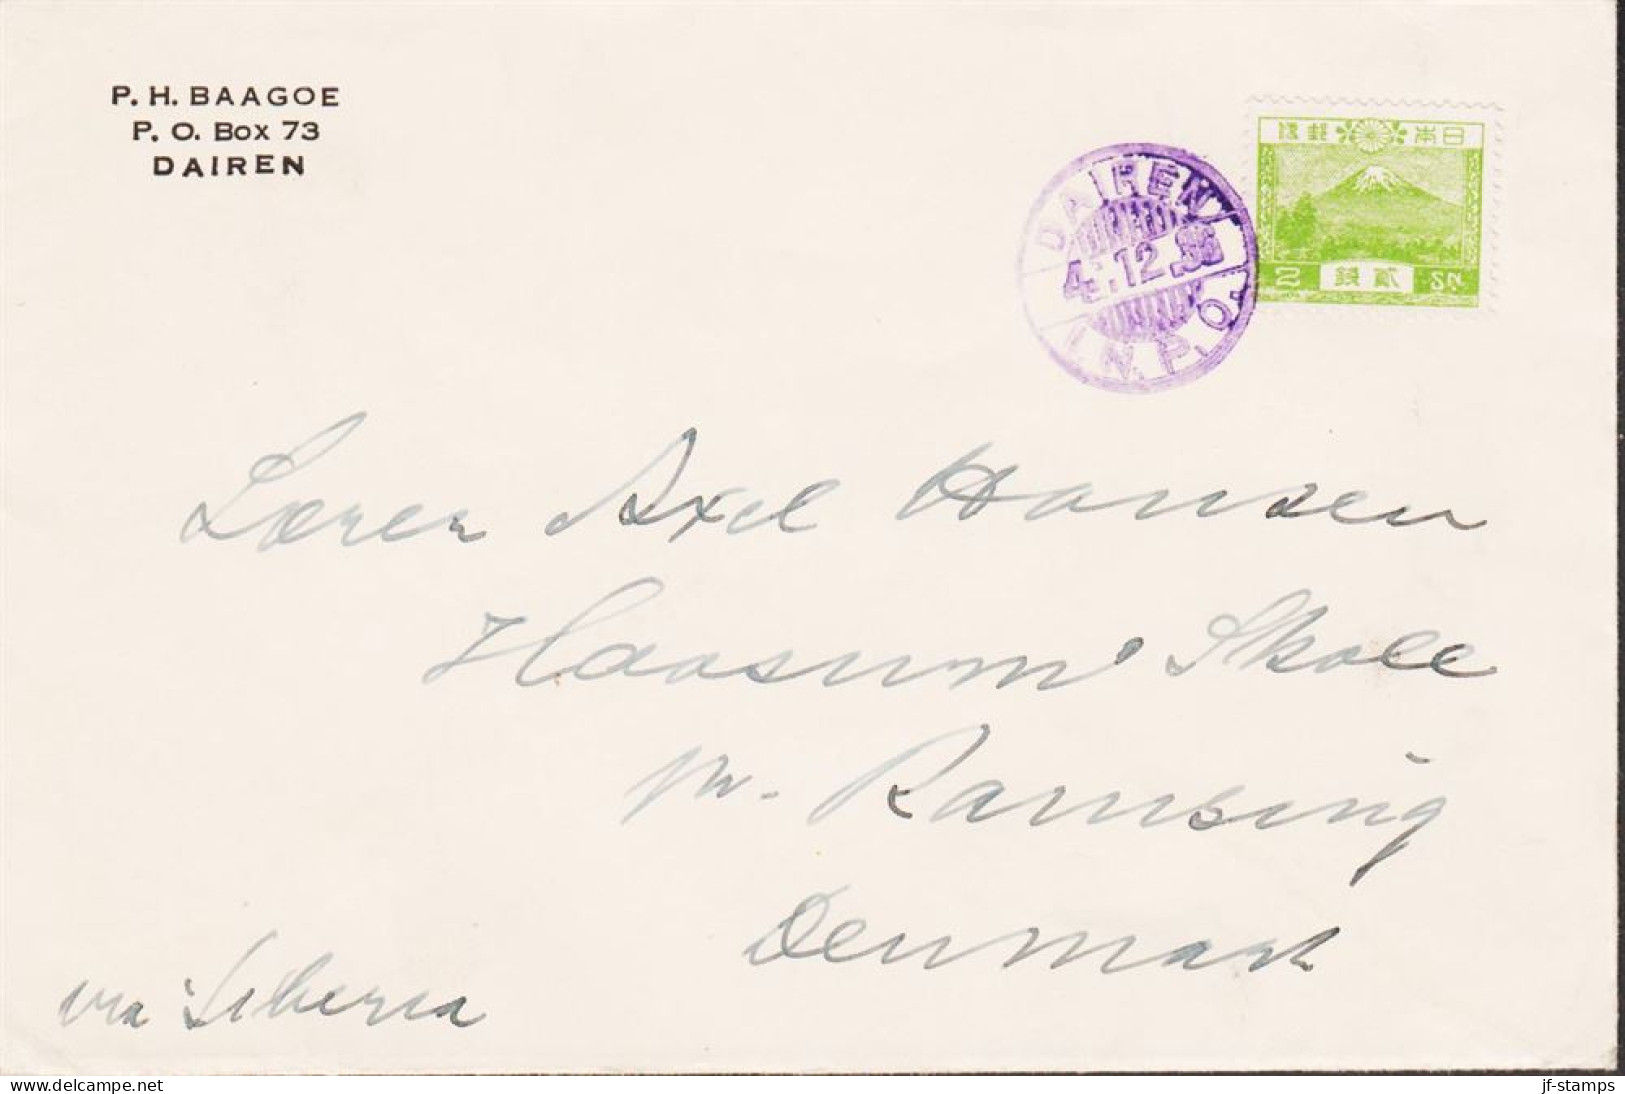 P. H. BAAGOE
P. O. Box 73
DAIREN
DAIREN
4.12.36
I.N.P.O.
日本郵便
2 貳銭 Sn.
Lærer Axel Hansen
Haasum Skole
pr. Ramsing
Denmark
via Siberia
www.delcampe.net
jf-stamps